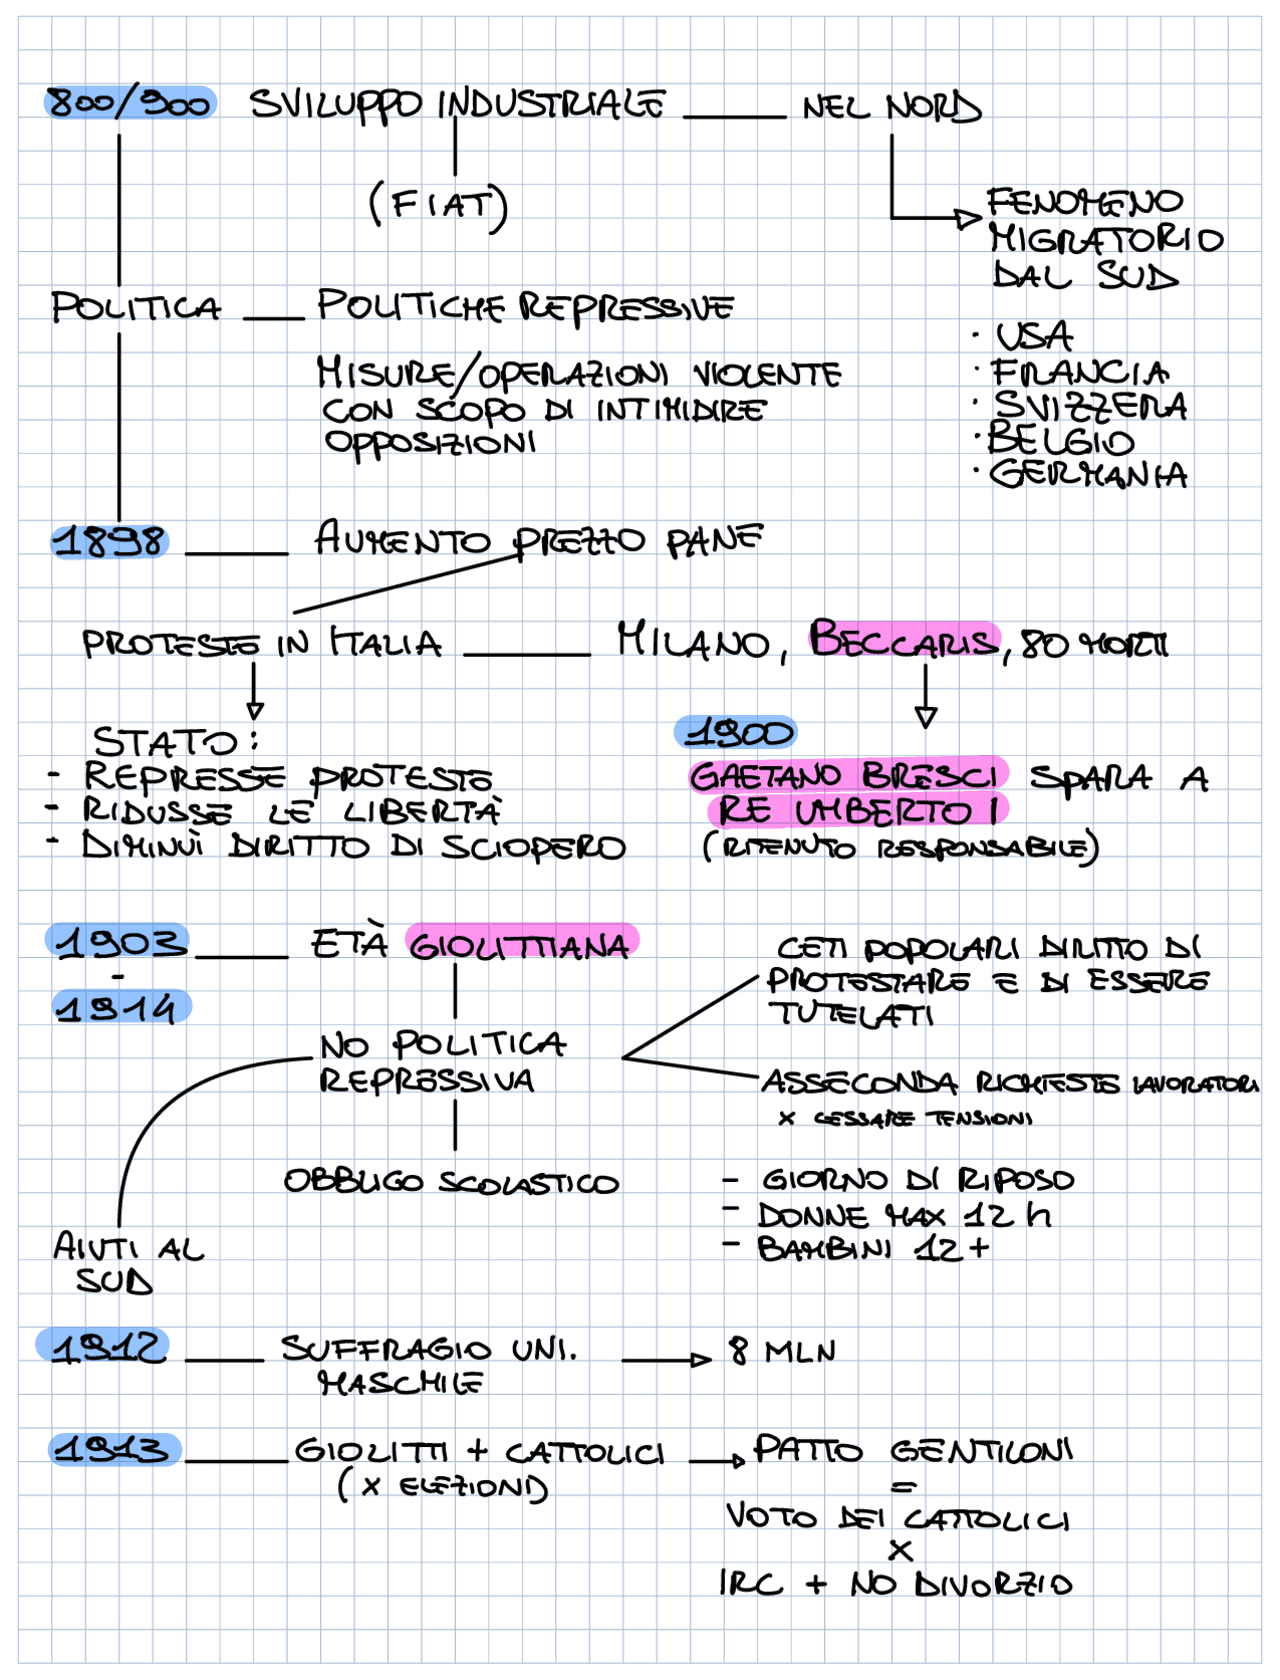 800/900 SVILUPPO INDUSTRIALE NEL NORD
(FIAT)
FENOMENO
MIGRATORIO
DAL SUD
· USA
· FRANCIA
· SVIZZERA
· BELGIO
· GERMANIA
POLITICA POLITICHE REPRESSIVE
MISURE/OPERAZIONI VIOLENTE
CON SCOPO DI INTIMIDIRE
OPPOSIZIONI
1898 AUMENTO PREZZO PANE
PROTESTE IN ITALIA MILANO, BECCARIS, 80 MORTI
STATO:
- REPRESSE PROTESTE
- RIDUSSE LE LIBERTÀ
- DIMINUÌ DIRITTO DI SCIOPERO
1900
GAETANO BRESCI SPARA A
RE UMBERTO I
(RITENUTO RESPONSABILE)
1903
-
1914
ETÀ GIOLITTIANA
NO POLITICA
REPRESSIVA
CETI POPOLARI DIRITTO DI
PROTESTARE E DI ESSERE
TUTELATI
ASSECONDA RICHIESTE LAVORATORI
X CESSARE TENSIONI
OBBLIGO SCOLASTICO
- GIORNO DI RIPOSO
- DONNE MAX 12 h
- BAMBINI 12+
AIUTI AL
SUD
1912 SUFFRAGIO UNI. 8 MLN
MASCHILE
1913 GIOLITTI + CATTOLICI PATTO GENTILONI
(X ELEZIONI)
=
VOTO DEI CATTOLICI
X
IRC + NO DIVORZIO